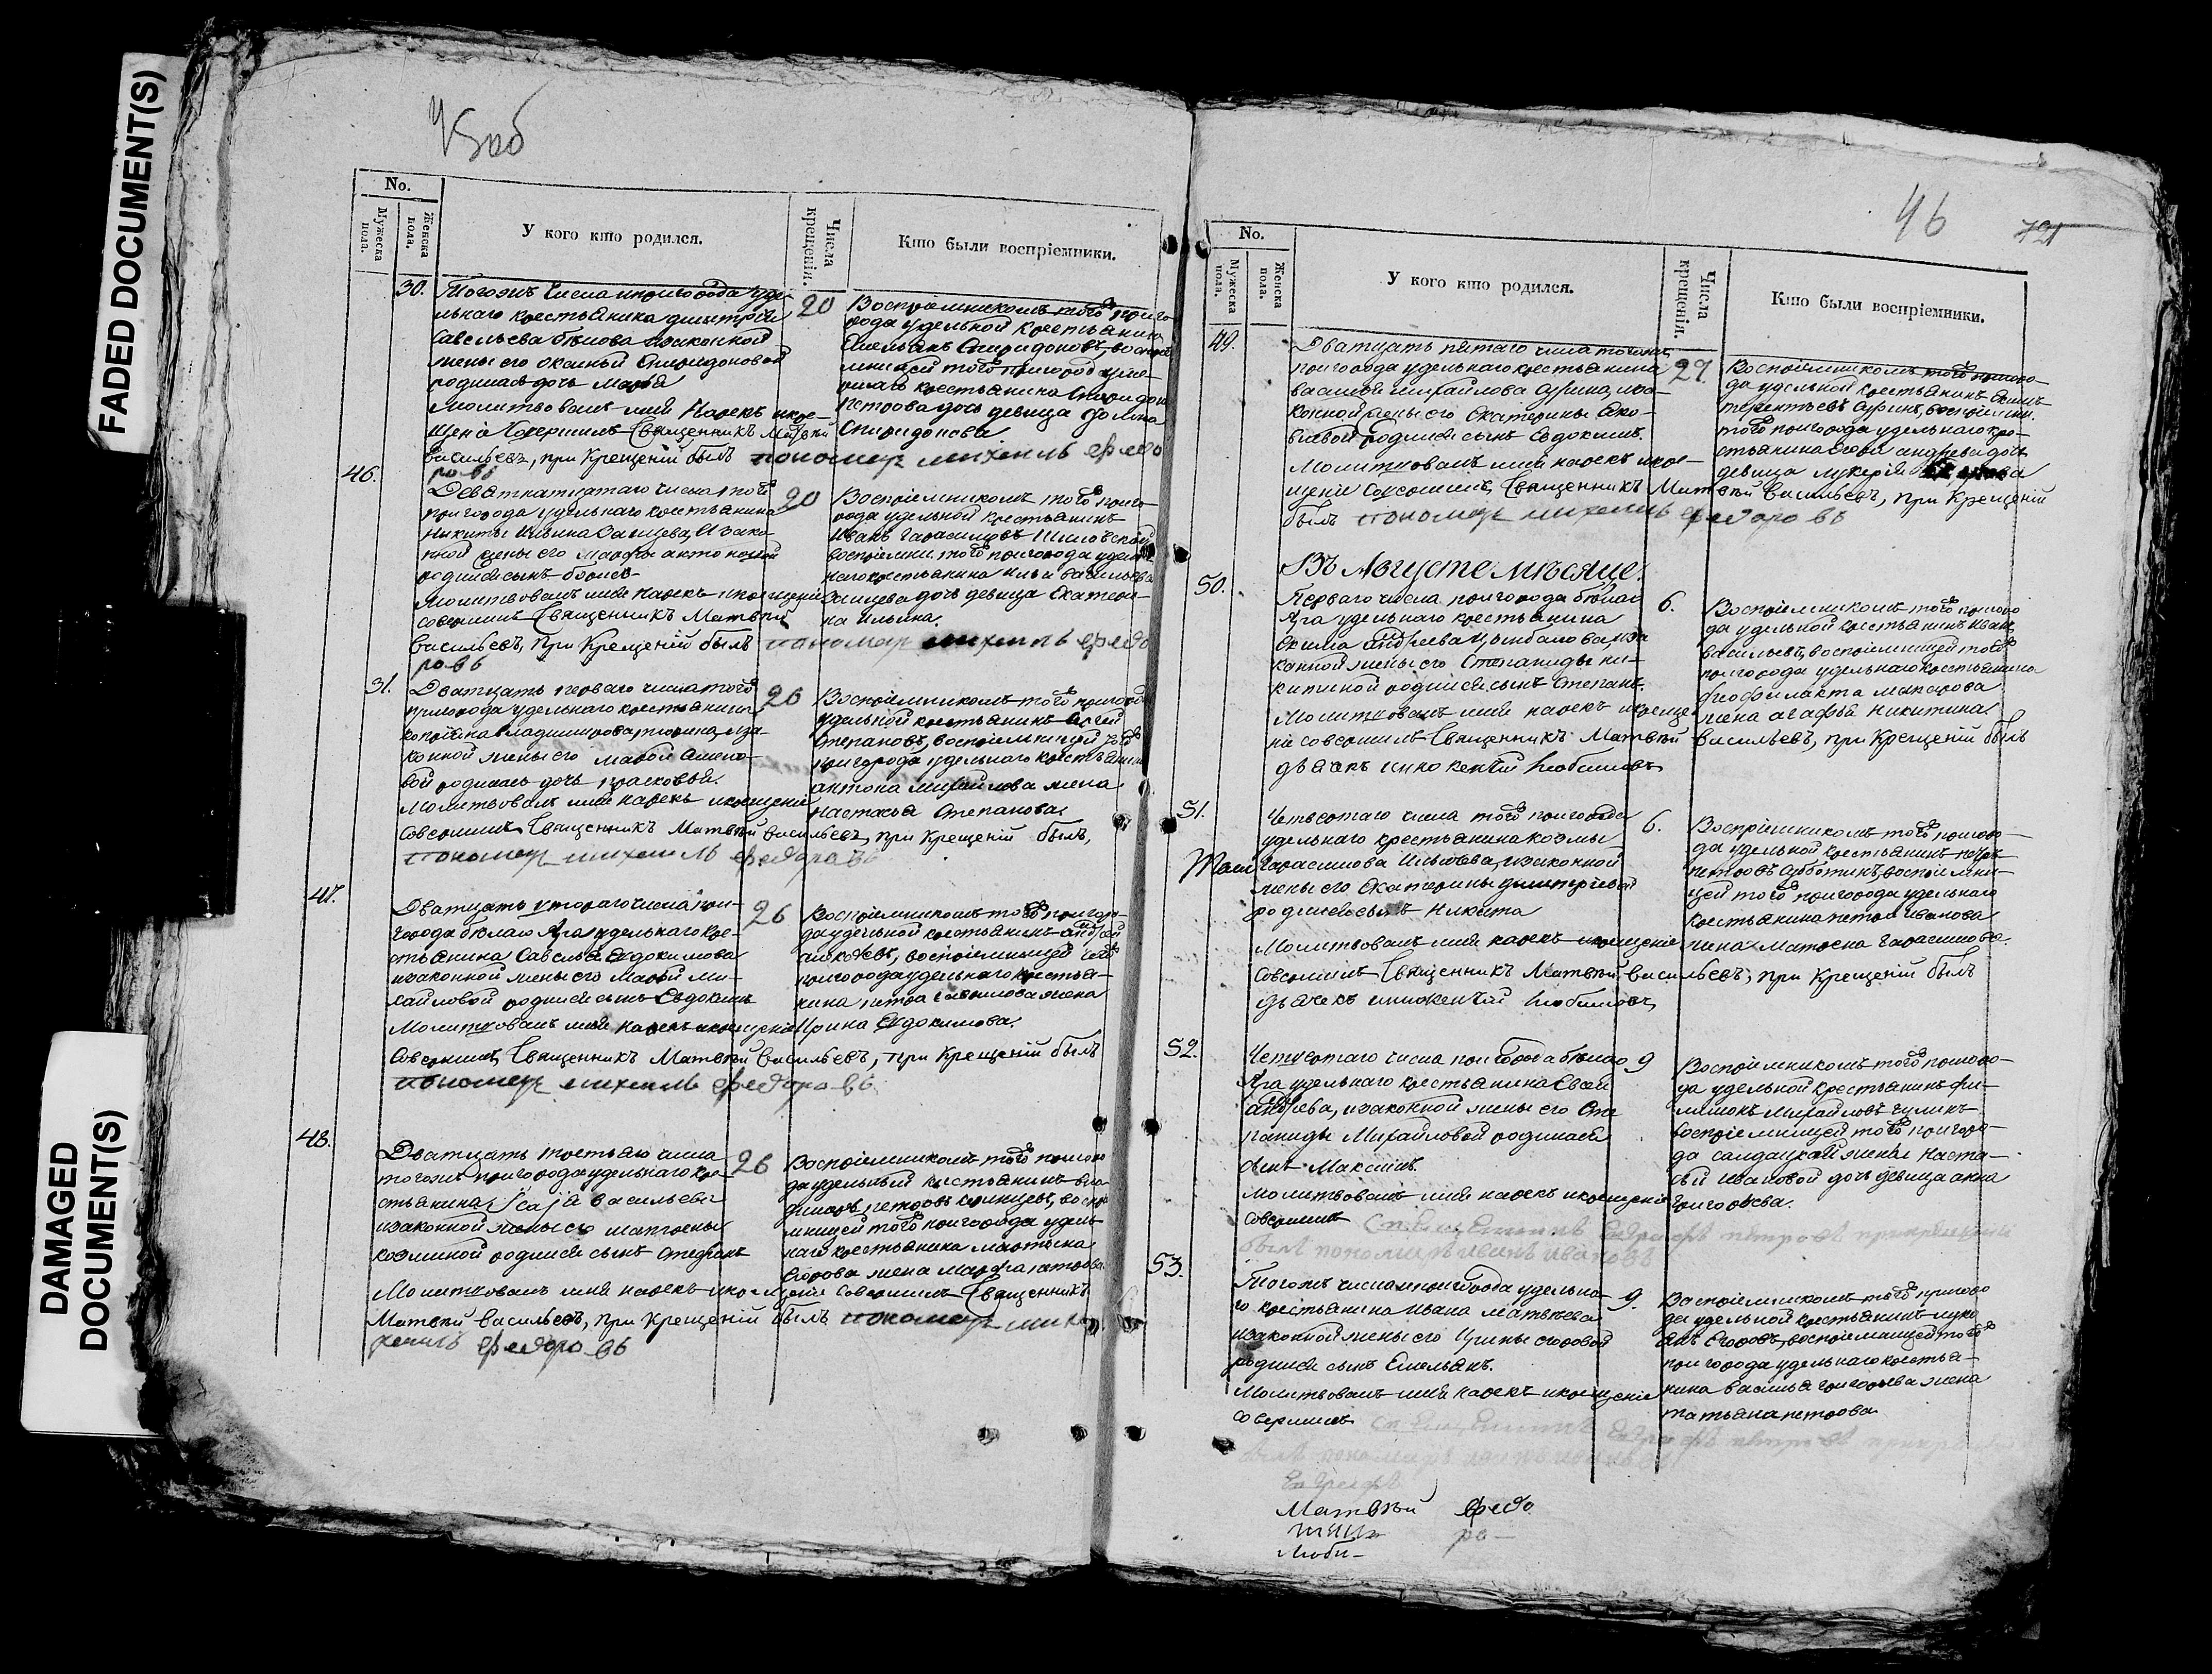 FADED DOCUMENT(S)
DAMAGED
DOCUMENT(S)
45об
No.
Мужеска пола.
Женска пола.
У кого кто родился.
Числа крещенія.
Кто были воспріемники.
30.
Тогожъ числа ипригорода уде-
льнаго крестьянина дмитрія
Савельева бѣлова изаконной
жены его Спиридоновой
родилась дочь Марья
Молитвовалъ имя Нарекъ икре-
щеніе Совершилъ Священникъ Матвѣй
Васильевъ, при Крещеніи былъ пономаръ михаилъ федо
ровъ
20
Воспріемникомъ того приго-
рода удельной Крестьянинъ
Емельянъ Спиридоновъ, воспріе-
мницей того пригорода уде-
льнаго крестьянина Спиридона
Петрова дочь девица
Спиридонова
46.
Девятнатцатаго числа того
пригорода удельнаго крестьянина
Никиты Ильина Заицева, Изако-
нной жены его Марфы антоновой
родился сынъ борисъ
Молитвовалъ имя Нарекъ икрещеніе
совершилъ Священникъ Матвѣй
Васильевъ, при Крещеніи былъ пономаръ михаилъ федо
ровъ
20
Воспріемникомъ того приго-
рода удельной крестьянинъ
Иванъ Гарасимовъ
воспріемни. того пригорода удель-
наго крестьянина Ильи Васильева
Заицева дочь девица Екатери-
на Ильина.
31.
Дватцать перваго числа того
пригорода удельнаго крестьянина
Владимирова, иза-
конной жены его Марьи Семено-
вой родилась дочь прасковья.
Молитвовалъ имя нарекъ икрещеніе
Совершилъ Священникъ Матвѣй Васильевъ, при Крещеніи былъ,
пономаръ михаилъ федоровъ
26
Воспріемникомъ того пригорода
удельной крестьянинъ
Степановъ, воспріемницей того
пригорода удельнаго крестьянина
антона Михайлова жена
Настасья Степанова.
47.
Дватцать втораго числа при-
города бѣлаго Яра удельнаго кре-
стьянина Савелья Евдокимова
изаконной жены его Марьи Ми-
хайловой родился сынъ Евдокимъ
Молитвовалъ имя нарекъ икрещеніе
Совершилъ Священникъ Матвѣй Васильевъ, при Крещеніи былъ
пономаръ михаилъ федоровъ
26
Воспріемникомъ того пригоро-
да удельной крестьянинъ андрей
воспріемницей того
пригорода удельнаго крестья-
нина петра Гаврилова жена
Ирина Евдокимова.
48.
Дватцать третьяго числа
тогожъ пригорода удельнаго кре-
стьянина Исаія Васильева
изаконной жены его матрены
козминой родился сынъ Стефанъ
Молитвовалъ имя нарекъ икрещеніе Совершилъ Священникъ
Матвѣй Васильевъ, при Крещеніи былъ пономаръ миха
илъ федоровъ
26
Воспріемникомъ того пригоро
да удельный крестьянинъ вла-
димиръ петровъ воспріе-
мницей того пригорода удель-
наго крестьянина мартына
Егорова жена Марфа петрова
46
721
No.
Мужеска пола.
Женска пола.
У кого кто родился.
Числа крещенія.
Кто были воспріемники.
49.
Дватцать пятаго числа тогожъ
пригорода удельнаго крестьянина
василья михайлова иза-
конной жены его Екатерины Яко-
влевой родился сынъ Евдокимъ.
Молитвовалъ имя нарекъ икре-
щеніе Совершилъ Священникъ Матвѣй Васильевъ, при Крещеніи
былъ пономаръ михаилъ федоровъ
27
Воспріемникомъ того пригоро-
да удельной крестьянинъ
терентьевъ воспріемни.
того пригорода удельнаго кре-
стьянина андреева дочь
девица лукерія
Въ Августе мѣсяце.
50.
Перваго числа пригорода бѣлаго
Яра удельнаго крестьянина
Екима андреева Цымбалова, иза
конной жены его Степаниды ни-
китиной родился сынъ Степанъ.
Молитвовалъ имя нарекъ икреще-
ніе совершилъ Священникъ Матвѣй Васильевъ, при Крещеніи былъ
дьячекъ инокентій Любимовъ
6.
Воспріемникомъ того пригоро
да удельной крестьянинъ Иванъ
васильевъ, воспріемницей того
пригорода удельнаго крестьянина
феофилакта макарова
жена агафья Никитина
51.
Четвертаго числа того пригорода
удельнаго крестьянина козмы
Гарасимова изаконной
жены его Екатерины дмитріевой
родился сынъ Никита
Молитвовалъ имя нарекъ икрещеніе
Совершилъ Священникъ Матвѣй Васильевъ, при Крещеніи былъ
дьячекъ инокентій Любимовъ
6.
Воспріемникомъ того пригоро-
да удельной крестьянинъ петръ
петровъ воспріемни-
цей того пригорода удельнаго
крестьянина петра Иванова
жена Матрена Гарасимова.
52.
Четвертаго числа пригорода бѣлаго
Яра удельнаго крестьянина
андреева, изаконной жены его Сте
паниды Михайловой родился
сынъ Максимъ.
молитвовалъ имя нарекъ икрещеніе
совершилъ Священникъ Евграфъ петровъ прикрещеніи
былъ пономаръ иванъ ивановъ
9
Воспріемникомъ того пригоро-
да удельной крестьянинъ фи-
лимонъ михайловъ
воспріемницей того пригоро-
да салдацкой жены Наста-
сьи ивановой дочь девица анна
Григорьева.
53.
Тогожъ числа ипригорода удельна-
го крестьянина Ивана Матвѣева
изаконной жены его Ирины егоровой
родился сынъ Емельянъ.
Молитвовалъ имя нарекъ икрещеніе
совершилъ Священникъ Евграфъ петровъ
9.
Воспріемникомъ того пригоро
да удельной крестьянинъ луко
янъ Егоровъ, воспріемницей того
пригорода удельнаго крестья-
нина василья григорьева жена
татьяна петрова
Евграфъ
Матвѣй
федо
ро-
Люби-